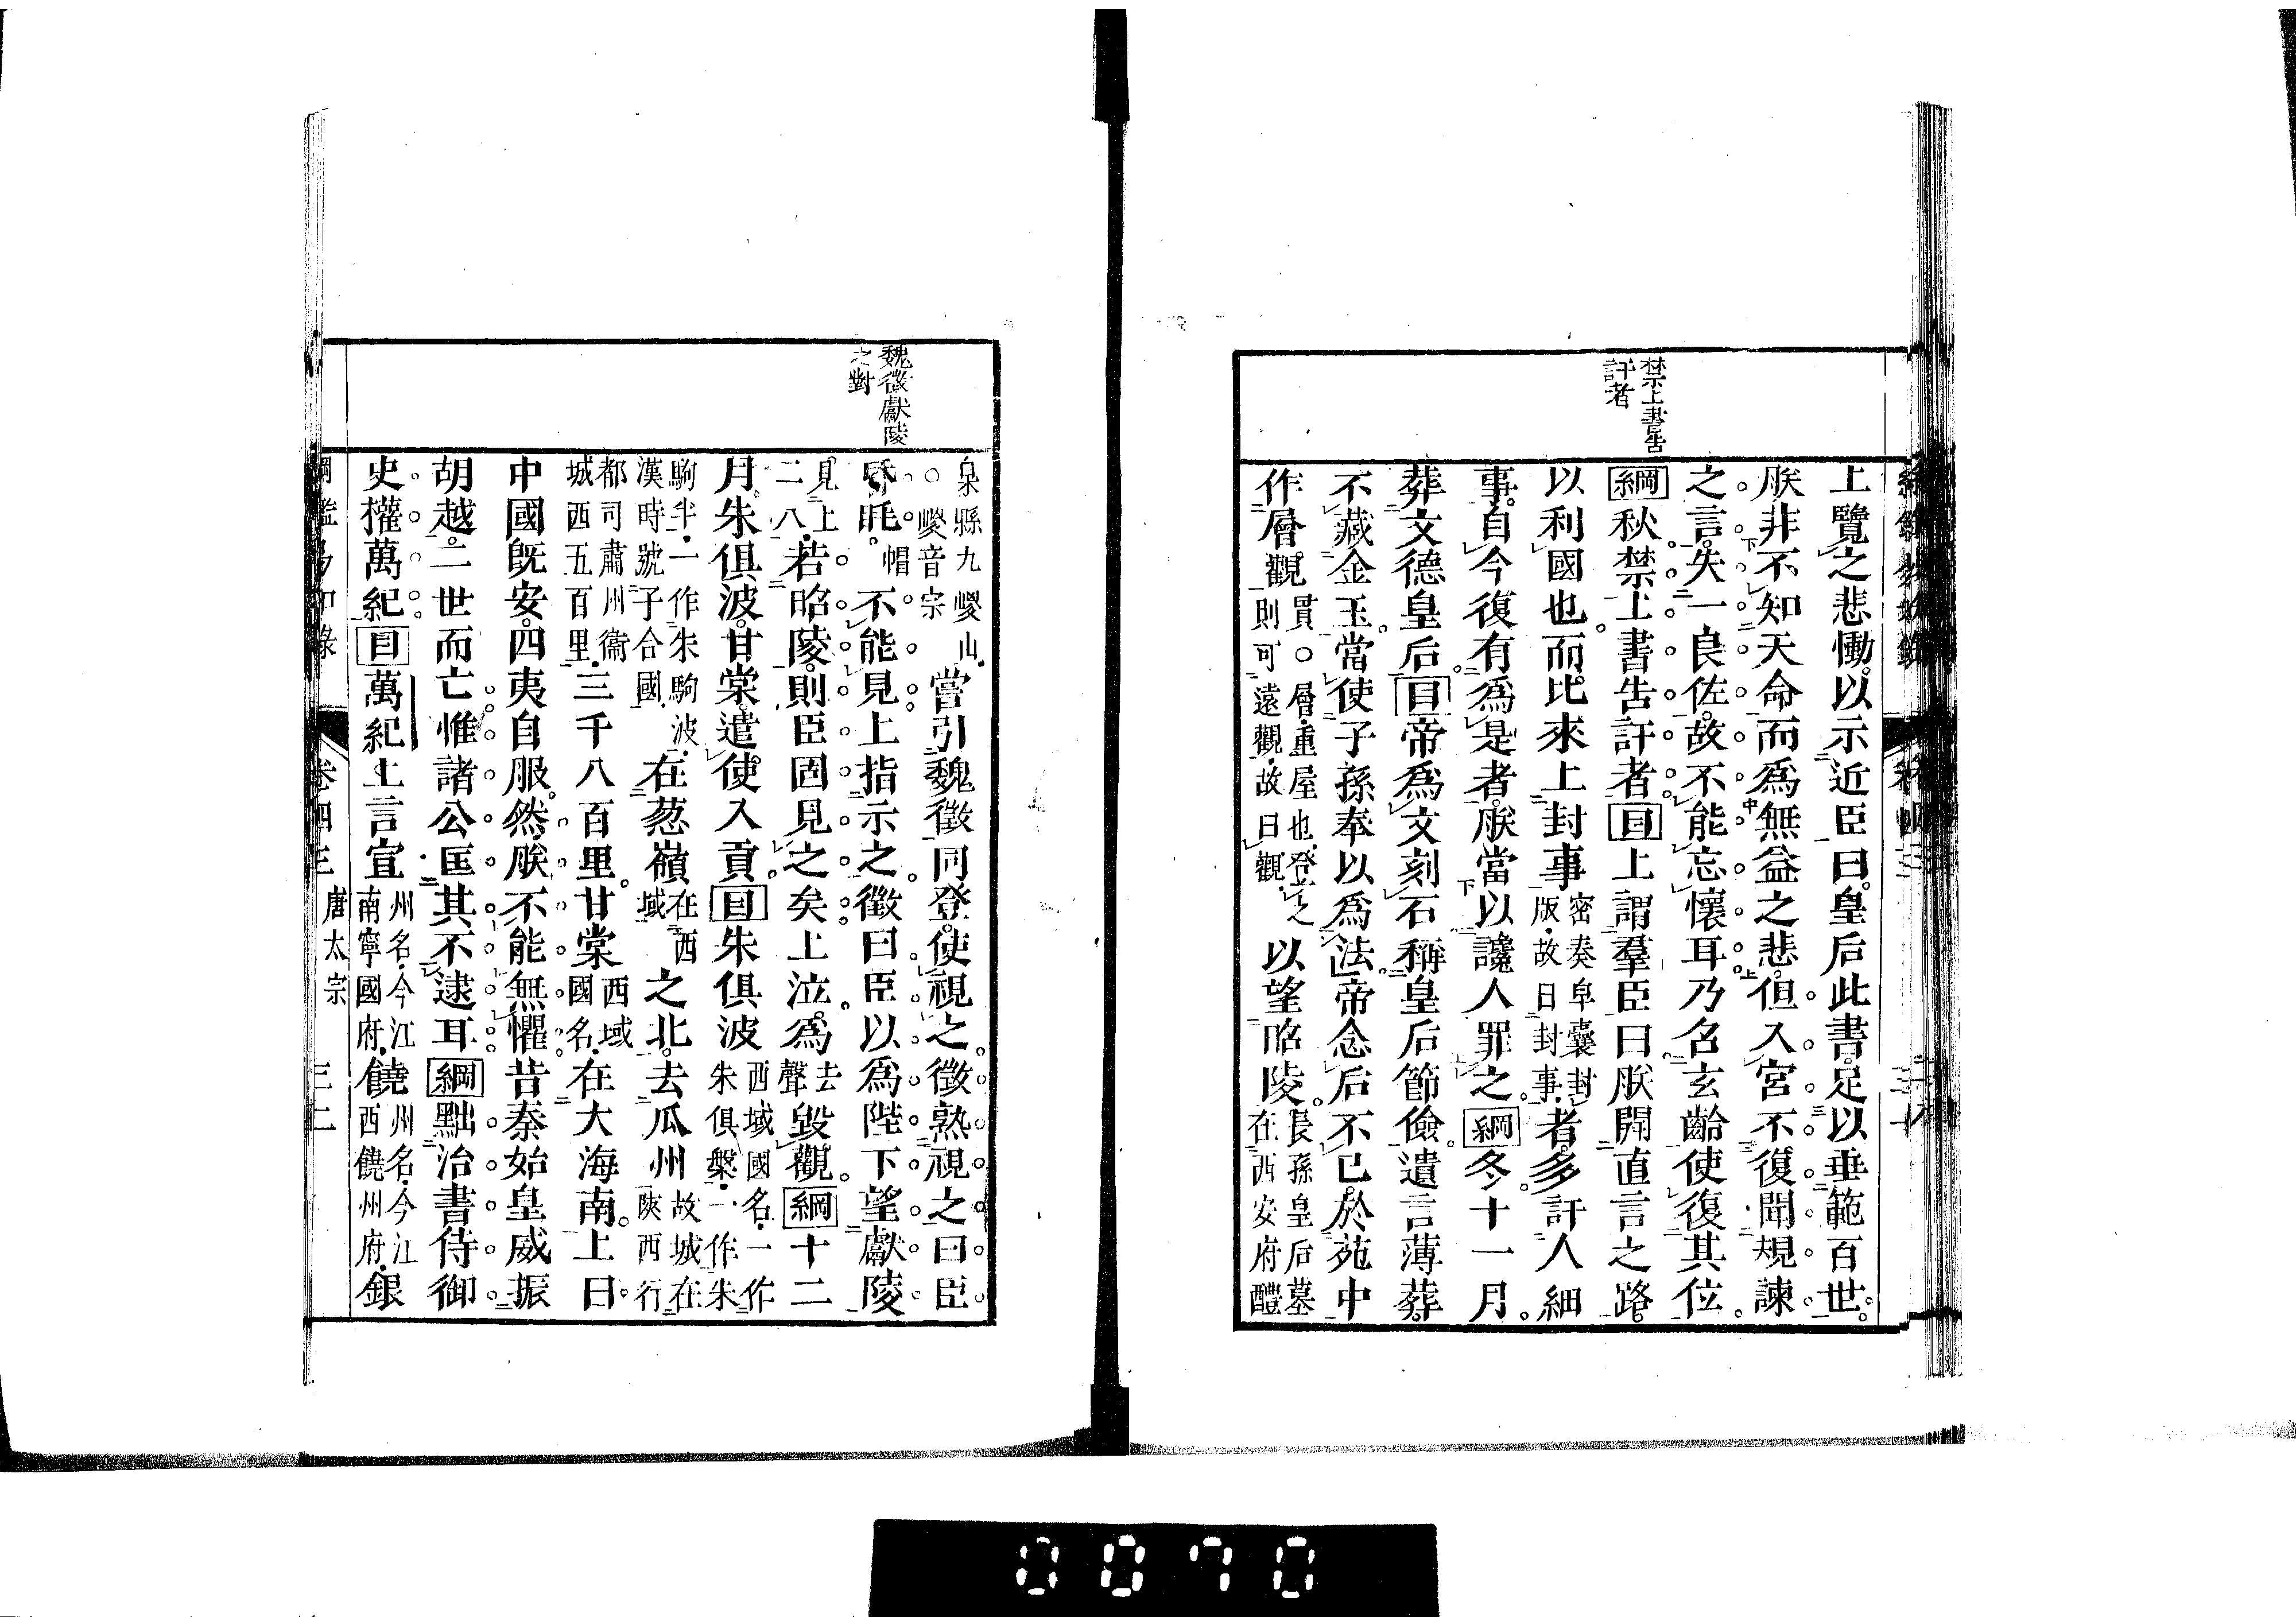 禁上書告
訐者
上覽之悲慟。以示近臣曰。皇后此書。足以垂範百世。
朕非不知天命而爲無益之悲。但入宮不復聞規諫
之言。失一良佐。故不能忘懷耳乃召玄齡使復其位。
綱秋。禁上書告訐者目上謂羣臣曰朕開直言之路。
以利國也。而比來上封事密奏皁囊封版。故曰封事。者。多訐人細
事。自今復有爲是者。朕當以讒人罪之。綱冬。十一月。
葬文德皇后。目帝爲文刻石稱皇后節儉。遺言薄葬。
不藏金玉。當使子孫奉以爲法。帝念后不已。於苑中
作層觀貫○層。重屋也。登之則可遠觀。故曰觀。以望昭陵。長孫皇后墓在西安府醴
魏徵獻陵
之對
泉縣九嵕山。○嵕音宗嘗引魏徵同登。使視之。徵熟視之曰。臣
昏眊。帽不能見上指示之。徵曰臣以爲陛下望獻陵。
見上二八。若昭陵。則臣固見之矣。上泣。爲去聲毀觀。綱十二
月。朱俱波。甘棠。遣使入貢。目朱俱波西域國名。一作朱俱槃。一作朱
駒半。一作朱駒波。漢時號子合國。在葱嶺在西域之北。去瓜州故城在陝西行
都司肅州衞城西五百里。三千八百里。甘棠西域國名。在大海南。上曰。
中國既安。四夷自服。然朕不能無懼。昔秦始皇威振
胡越。二世而亡惟諸公匡其不逮耳綱黜治書侍御
史權萬紀目萬紀上言宣州名。今江南寧國府。饒州名。今江西饒州府。銀
卷四三
唐太宗